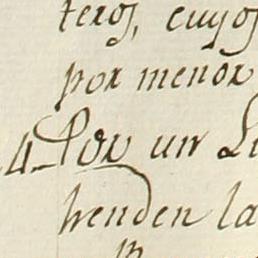 teros, cuyos
por menor
4 Por un Li
henden la